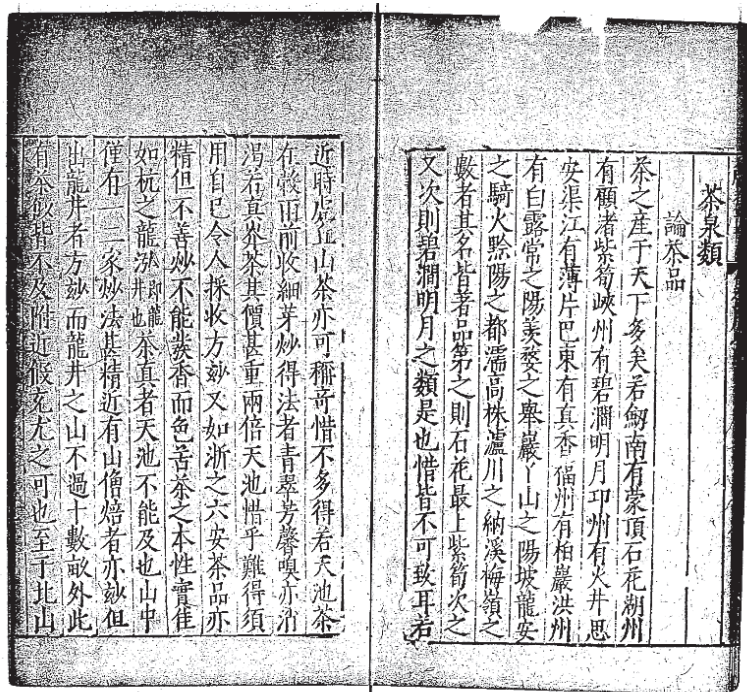 茶泉類
論茶品
茶之産于天下多矣若劒南有蒙頂石花湖州
有顧渚紫筍峽州有碧澗明月卭州有火井思
安渠江有薄片巴東有真香福州有柏巖洪州
有白露常之陽羡婺之舉巖丫山之陽坡龍安
之騎火黔陽之都濡高株瀘川之納溪梅嶺之
數者其名皆著品第之則石花最上紫筍次之
又次則碧澗明月之類是也惜皆不可致耳若
近時虎丘山茶亦可稱奇惜不多得若天池茶
在穀雨前收細芽炒得法者青翠芳馨嗅亦消
渴若真岕茶其價甚重兩倍天池惜乎難得須
用自已令人採收方玅又如浙之六安茶品亦
精但不善炒不能發香而色苦茶之本性實佳
如杭之龍泓即龍井也茶真者天池不能及也山中
僅有一二家炒法甚精近有山僧焙者亦玅但
出龍井者方玅而龍井之山不過十數畝外此
有茶似皆不及附近假充尤之可也至于北山